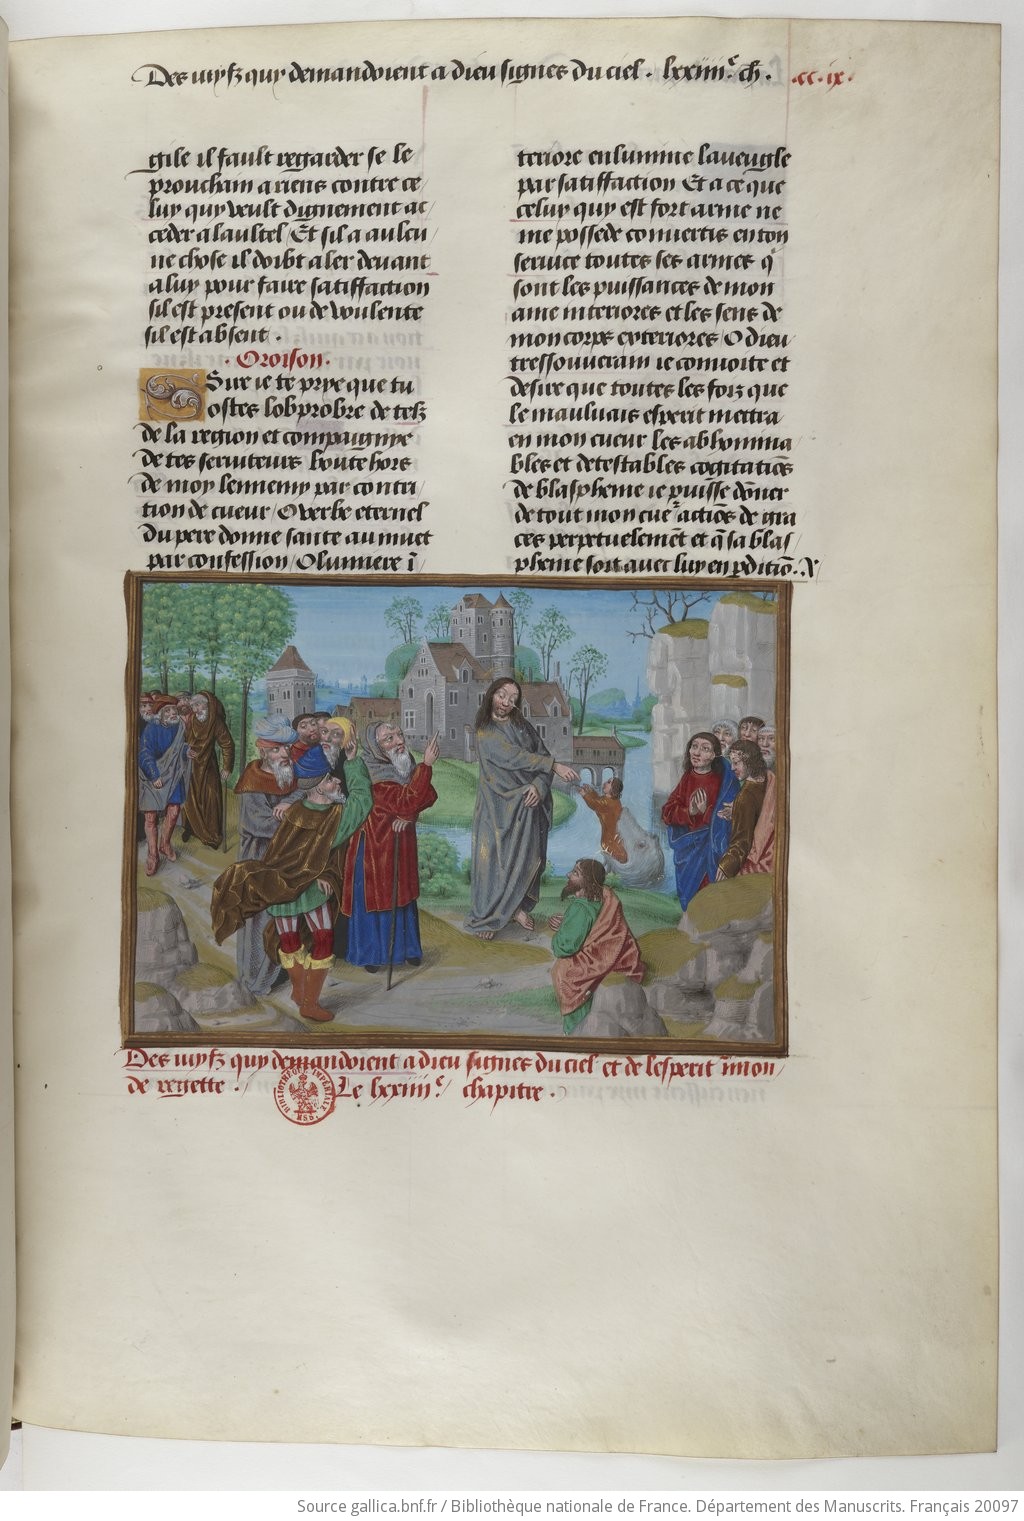 Des iuyfz quy demandoient a dieu signes du ciel. lxxiiii.e ch. .cc.ix.
gile il fault regarder se le
prouchain a riens contre ce/
luy quy veult dignement ac/
ceder a laultel / Et sil a aulcu/
ne chose il doibt aler deuant
a luy pour faire satiffaction
sil est present ou de voulente
sil est absent .
. Oroison .
Sire ie te prye que tu
ostes lobprobre de tesz
de la region et compaignye
de tes seruiteurs boute hors
de moy lennemy par contri/
tion de cueur / O verbe eternel
du pere donne sante au muet
par confession / O lumiere ī/
teriore enlumine laueugle
par satiffaction Et a ce que
celuy quy est fort arme ne
me possede conuertis en ton
seruice toutes ses armes q̄
sont les puissances de mon
ame interiores et les sens de
mon corps exteriores / O dieu
tressouuerain ie conuoite et
desire que toutes les foiz que
le mauluais esperit mettra
en mon cueur les abhomina/
bles et detestables cogitatiōs
de blaspheme ie puisse dōner
de tout mon cue2 actiōs de gra
ces perpetuelemēt et q̄ sa blas/
pheme soit auec luy en pditiō.
Des iuyfz quy demandoient a dieu signes du ciel et de lesperit īmon/
de reyette . Le lxxiiii.e chapitre .
BIBLIOTHÈQUE IMPÉRIALE
MSS.
Source gallica.bnf.fr / Bibliothèque nationale de France. Département des Manuscrits. Français 20097